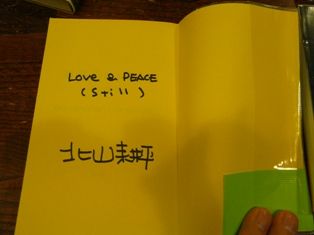 LOVE & PEACE
(Still)
北山耕平